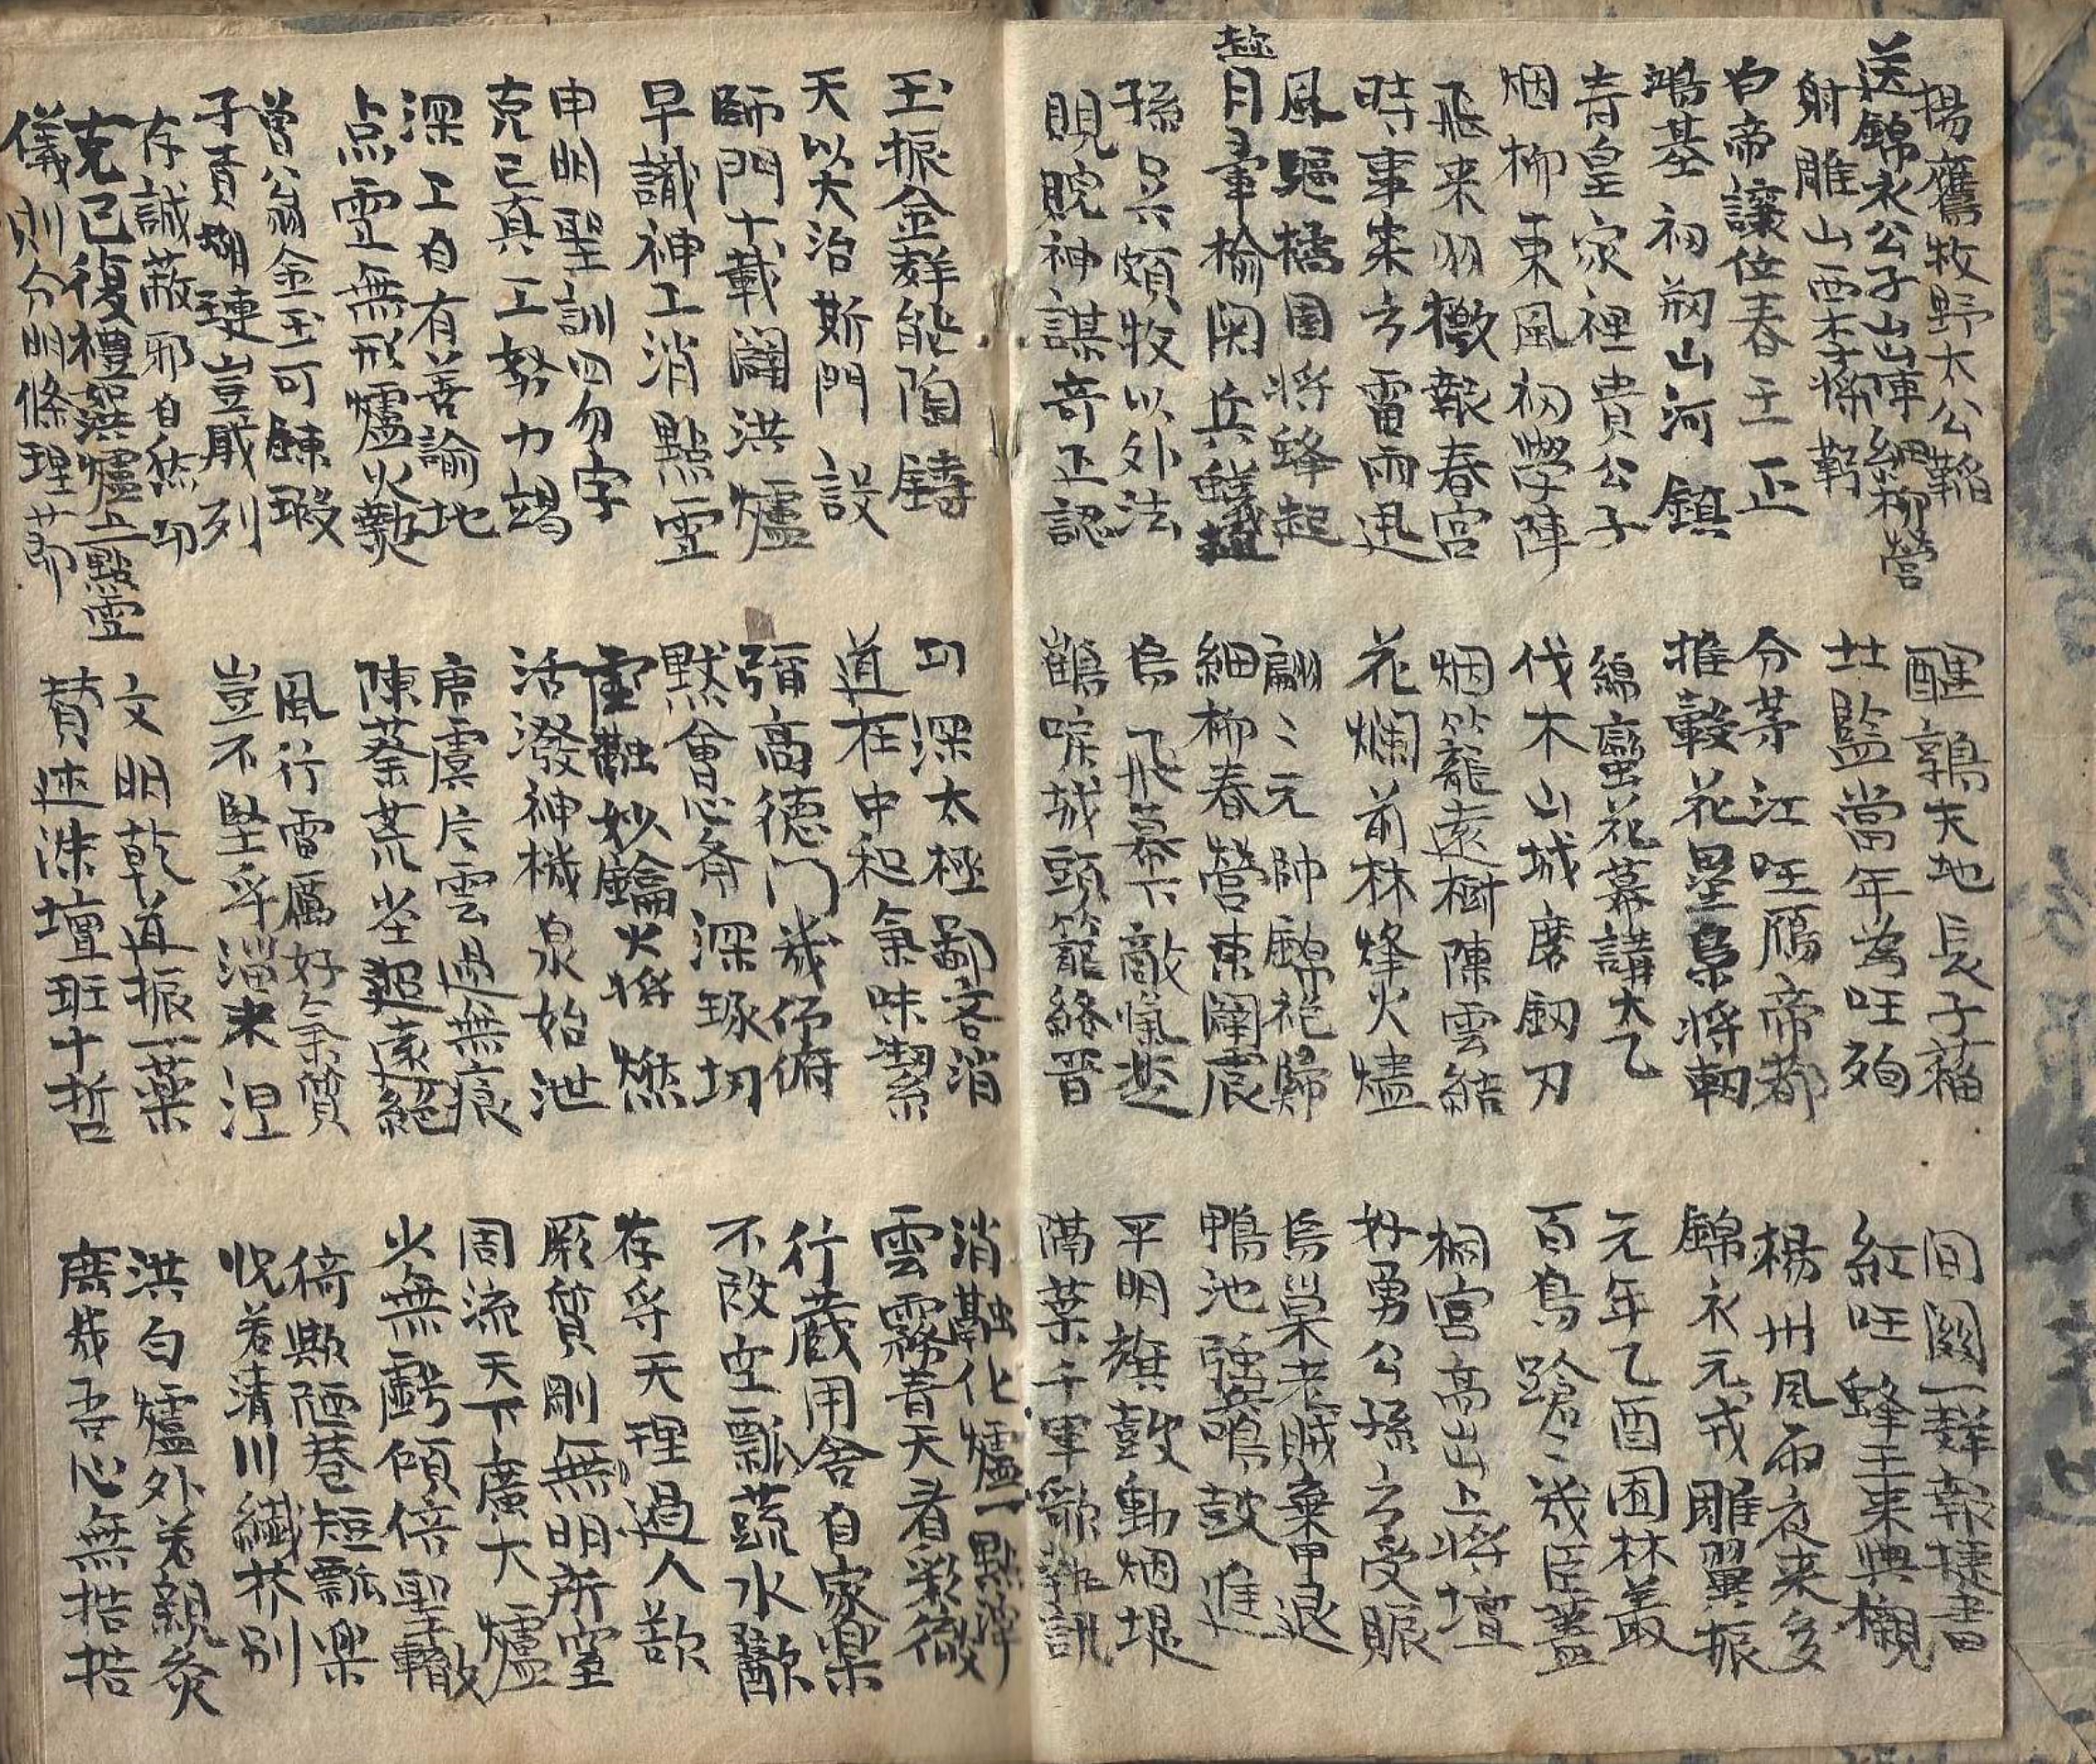 揚鷹牧野太公韜
送錦衣公子出陣細柳營
射雕山西李將
白帝讓位春王正
鴻基初剏山河鎮
青皇家裡貴公子
烟柳東風初學陣
飛来羽檄報春宮
時事案方雷雨迅
風驅橘園將蜂起
月暈榆関兵蟻
孫吳頗牧以外法
睍睆神謀奇正認
醒鶉天地長子
壯監當年為旺殉
分茅江旺鴈帝都
推轂花壘梟將軔
綿蠻花幕講太乙
伐木山城磨劒刀
烟籠遠樹陳雲結
花爛前林烽火燼
翩〻元帥錦袍歸
細柳春營東闢宸
烏飛幕下敵氣楚
鶴唳城頭籠絡晋
間關一群報捷書
紅旺蜂王来與櫬
楊州風雨夜来多
錦衣元戎雕翼振
元年乙酉困林叢
百鳥蹌〻幾臣藎
桐宮高出上將壇
好勇公孫方受賑
烏巢老賊棄甲退
鴨池強兵鳴鼓進
平明旗鼓動烟堤
隔葉千軍歌執訊
玉振金群能陶鑄
天以大冶斯門設
師門十載闢洪爐
早識神工消點雪
申明聖訓四勿字
克己真工努力竭
深工自有善諭地
点雪無形爐火爇
曾翁金玉可鍊瑕
子貢瑚璉豈厭列
存誠蔽邪自然功
克己復禮如洪爐上點雪
儀則分明條理節
功深太極鄙吝消
道在中和氣味潔
彌高德門幾俯
默會心齊深琢切
雪融妙鑰火將燃
活潑神機泉始泄
唐虞片雲過無痕
陳蔡荒坐超遠絕
風行雷厲好氣質
豈不堅乎淄来涅
文明乾道振一藥
賛述洙壇班十哲
消融化爐一點滓
雲霧青天看
行藏用舍自家樂
不改空瓢蔬水歠
存乎天理過人歆
厥質剛無明所窒
周流天下廣大爐
火無虧傾倍聖轍
猗歟陋巷短瓢樂
況若清川纖芥別
洪匀爐外若親灸
庶幾吾心無捁捁